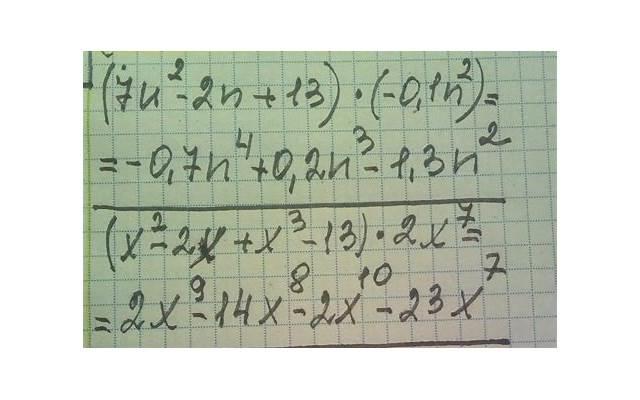 (7n² - 2n + 13) · (-0,1n²) =
= -0,7n⁴ + 0,2n³ - 1,3n²
(x² - 2x + x³ - 13) · 2x⁷ =
= 2x⁹ - 14x⁸ - 2x¹⁰ - 23x⁷